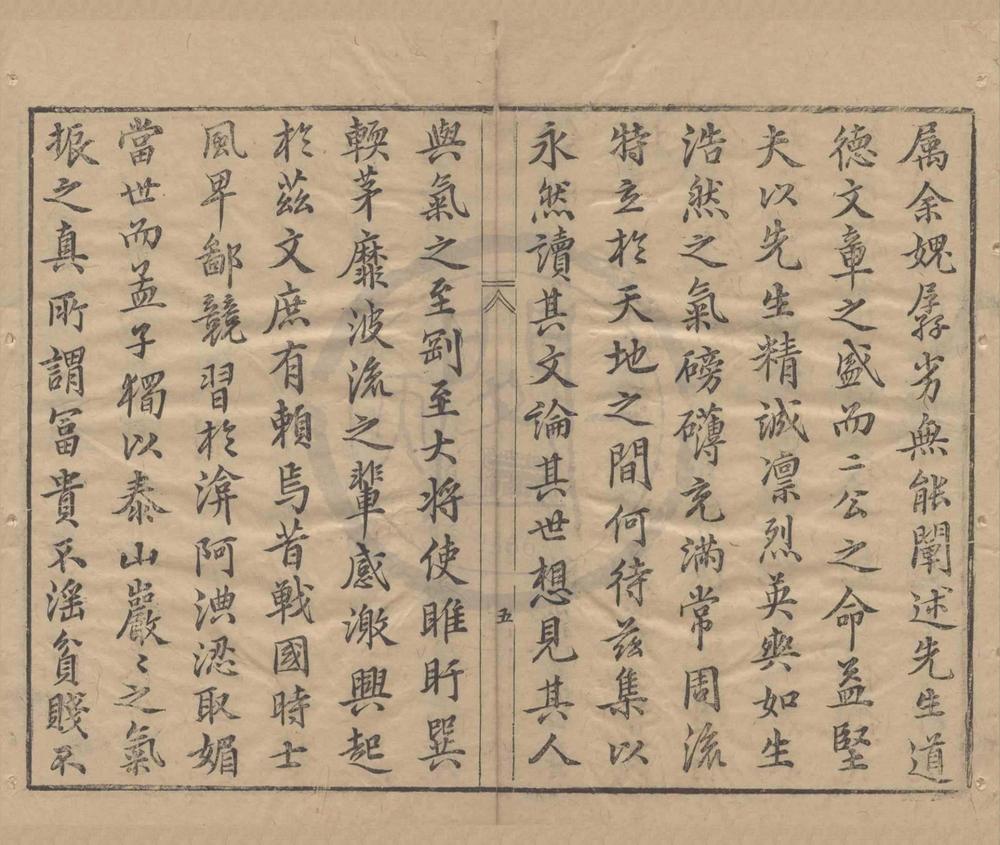 属余媿孱劣無能闡述先生道
德文章之盛而二公之命益堅
夫以先生精誠凛烈英爽如生
浩然之氣磅礴充滿常周流
特立於天地之間何待茲集以
永然讀其文論其世想見其人
五
與氣之至剛至大将使睢盱巽
輭茅靡波流之輩感激興起
於茲文庶有賴焉昔戰國時士
風卑鄙競習於渰阿淟涊取媚
當世而孟子獨以泰山巖〻之氣
振之真所謂冨貴不滛貧賤不